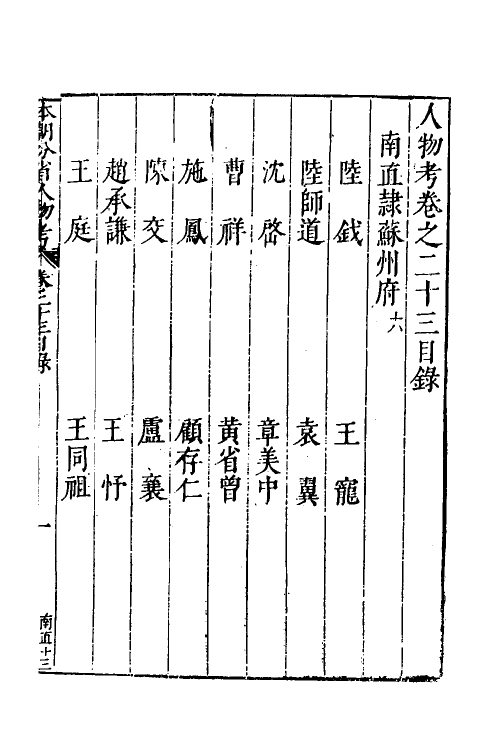 人物考卷之二十三目錄
南直隷蘇州府 六
陸鈛 王寵
陸師道 袁翼
沈啓 章美中
曹祥 黃省曾
施鳳 顧存仁
陳交 盧襄
趙承謙 王忬
王庭 王同祖
本朝分省人物考 卷之二十三目錄 一 南直十三